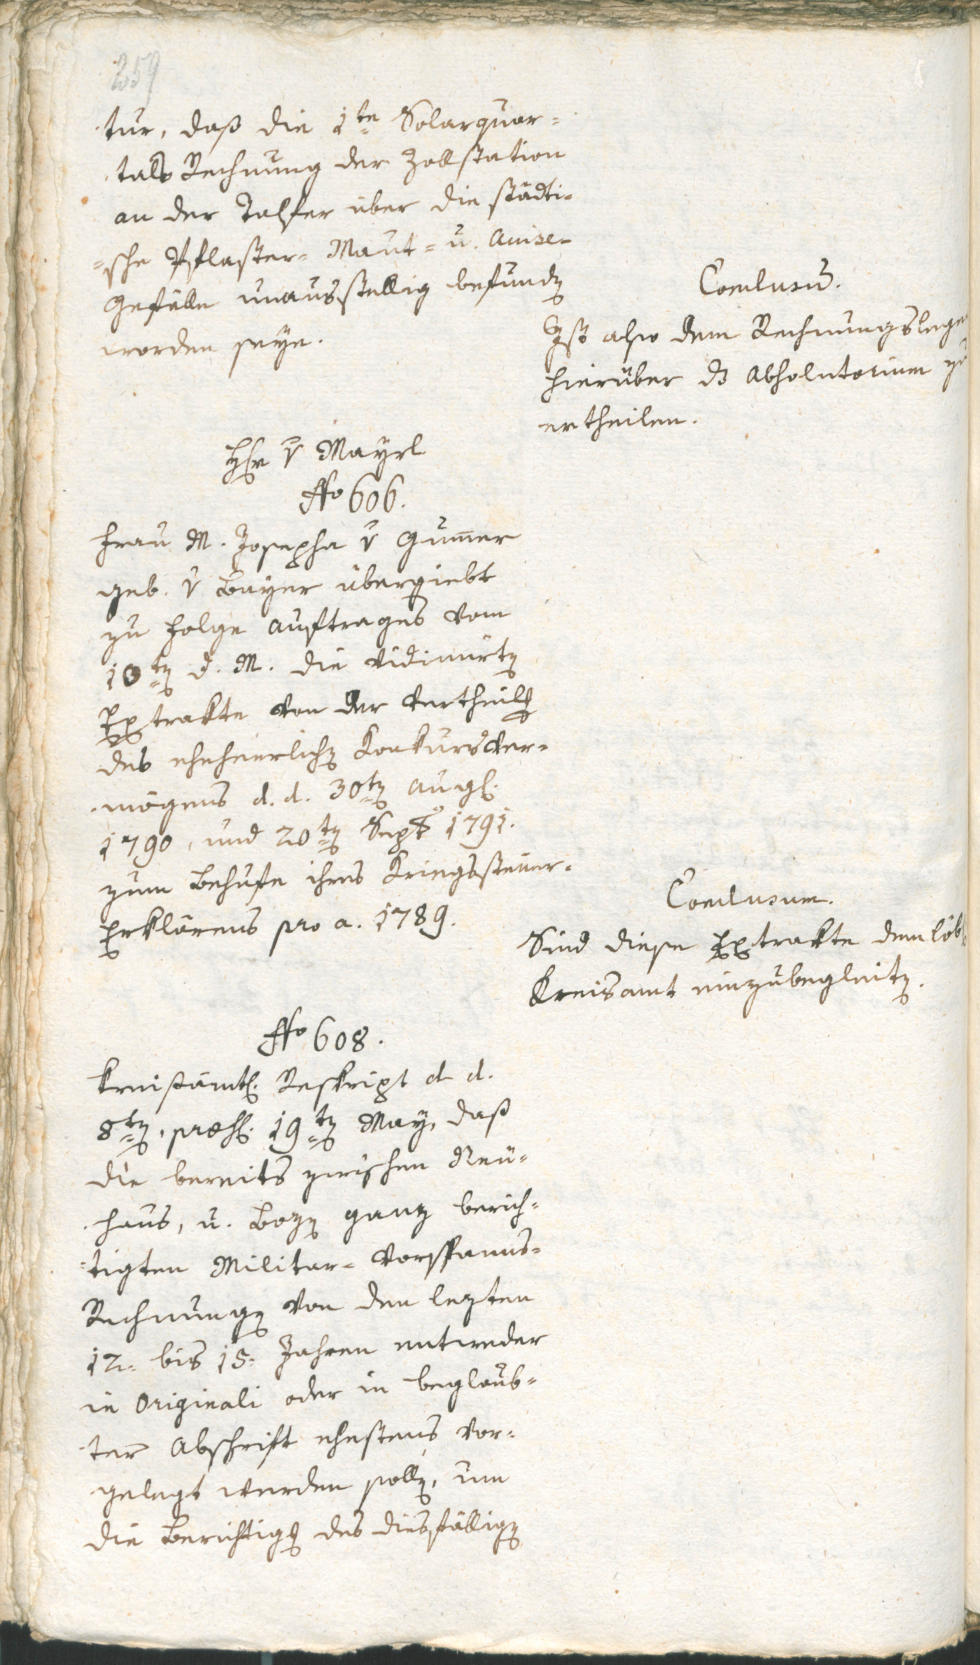 259
tur, daß die 1te Solarquar=
tals Rechnung der Zollstation
an der Talfer über die städti=
=sche Pflaster= Maut= u. Accise=
Gefälle unausstellig befunden
worden seye.
Conclusum.
Ist also dem Rechnungslege
hierüber das Absolutorium zu
ertheilen.
Hr v Mayrl
No 606.
Frau M. Josepha v Gumer
geb. v Bayer übergiebt
zu Folge Auftrages vom
10ten d. M. die vidimirten
Extrakte von der Vertheilung
des eheherrlichen Konkursver=
mögens d. d. 30ten Augl.
1790, und 20ten Septb 1791.
zum Behufe ihres Kriegssteuer=
Erklärens pro a. 1789.
Conclusum.
Sind diese Extrakte dem löb
Kreisamt einzubegleiten.
No 608.
Kreisämtl. Reskript d. d.
8ten, præs. 19ten May, daß
die bereits zwischen Neu=
haus, u. Bozen ganz berich=
tigten Militar= Vorspanns=
Rechnungen von den lezten
12= bis 15= Jahren entweder
in Originali oder in beglaub=
ter Abschrift ehestens vor=
gelegt werden sollen, um
die Berichtigung des diesfälligen